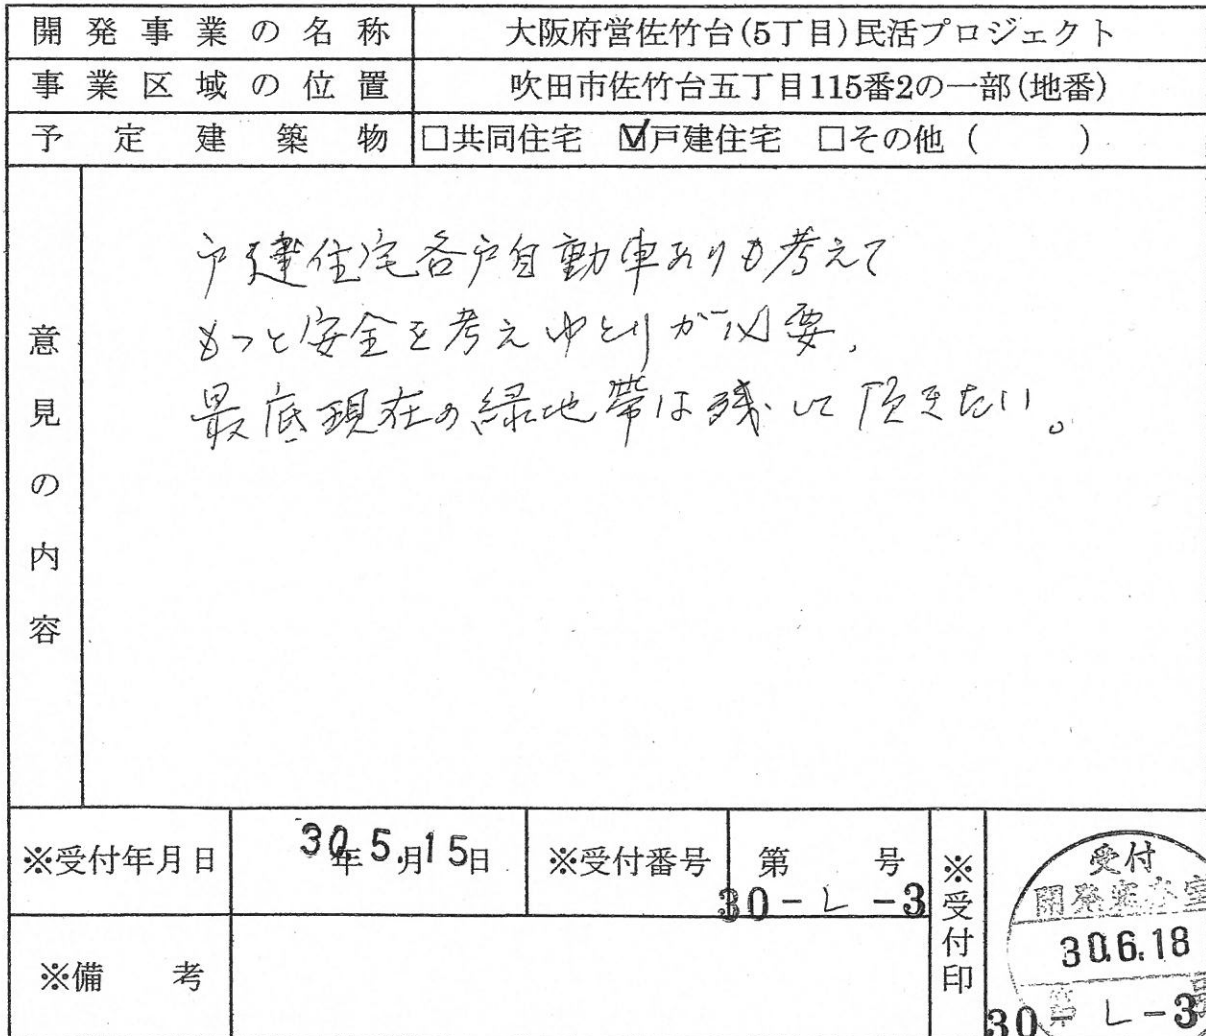 開発事業の名称 大阪府営佐竹台(5丁目)民活プロジェクト
事業区域の位置 吹田市佐竹台五丁目115番2の一部(地番)
予定建築物 □共同住宅 ☑戸建住宅 □その他 ( )
意見の内容
戸建住宅各戸自動車ありも考えて
もっと安全を考えゆとりが必要.
最底現在の緑地帯は残して頂きたい。
※受付年月日 30年5.月15日 ※受付番号 第 号
30-L-3
※受付印
受付
開発審査室
30.6.18
第 号
30-L-3
※備考